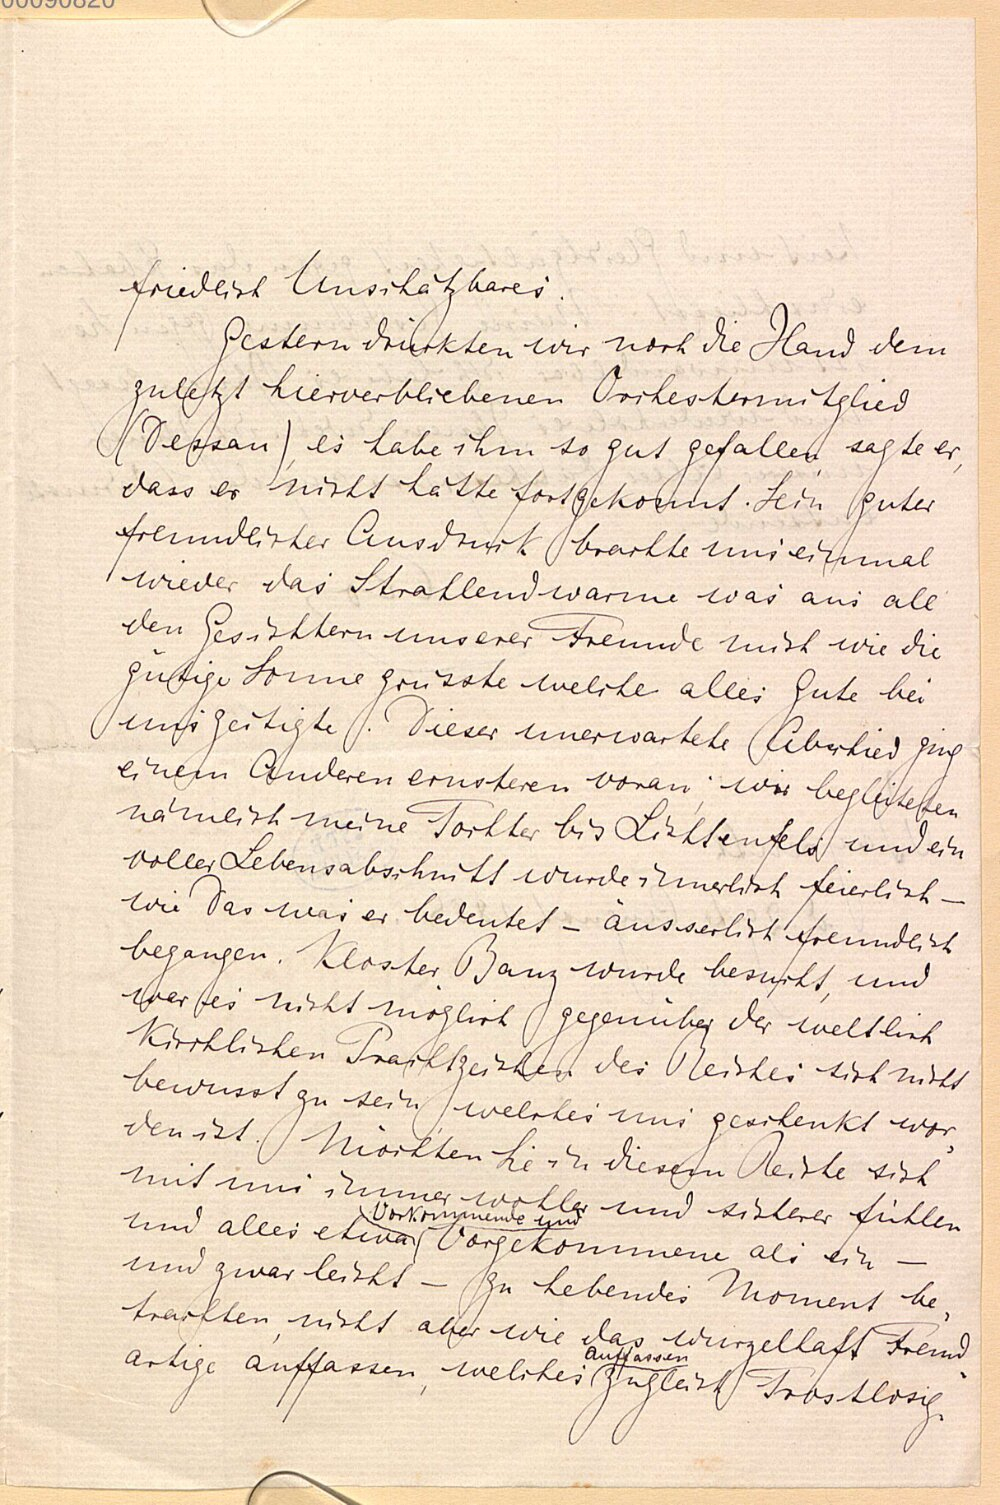 00090820
friedlich Unschätzbares.
Gestern drückten wir noch die Hand dem
zuletzt hierverbliebenen Orchestermitglied
(Dessau), es habe ihm so gut gefallen sagte er,
dass er nicht hätte fortgekonnt. Sein guter
freundlicher Ausdruck brachte uns einmal
wieder das Strahlendwarme was aus all
den Gesichtern unserer Freunde mich wie die
gütige Sonne grüsste welche alles Gute bei
uns zeitigte. Dieser unerwartete Abschied ging
einem Anderen ernsteren voran; wir begleiteten
nämlich meine Tochter bis Lichtenfels und ein
voller Lebensabschnitt wurde innerlich feierlich –
wie das was er bedeutet – äusserlich freundlich
begangen. Kloster Banz wurde besucht, und
war es nicht möglich gegenüber der weltlich
kirchlichen Prachtzeichen des Reiches sich nicht
bewusst zu sein, welches uns geschenkt wor-
den ist. Möchten Sie in diesem Reiche sich
mit uns immer wohler und sicherer fühlen
Vorkommende und
und alles etwa Vorgekommene als ein –
und zwar leicht – zu hebendes Moment be-
trachten, nicht aber wie das wurzelhaft Fremd-
auffassen
artige auffassen, welches zugleich Trostlosig-